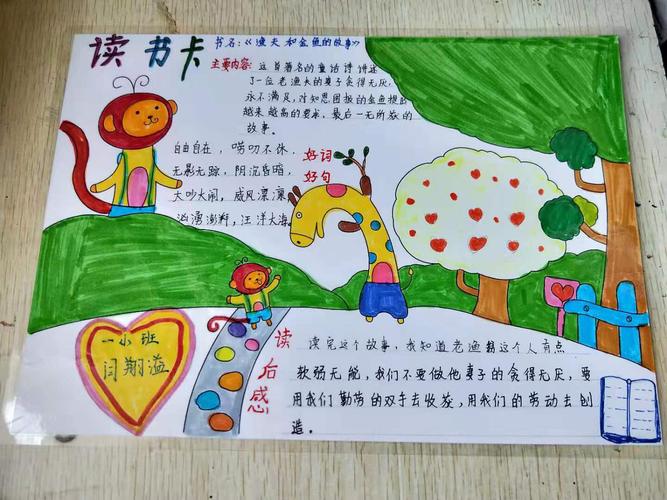 读书卡
书名:《渔夫和金鱼的故事》
主要内容: 这首著名的童话诗讲述
了一位老渔夫的妻子贪得无厌,
永不满足,对知恩图报的金鱼提出
越来越高的要求,最后一无所获的
故事。
好词
好句
自由自在,唠叨不休,
无影无踪,阴沉昏暗,
大吵大闹,威风凛凛
汹涌澎湃,汪洋大海。
一小班
闫翔溢
读后感
读完这个故事,我知道老渔翁这个人有点
软弱无能,我们不要做他妻子的贪得无厌,要
用我们勤劳的双手去收获,用我们的劳动去创
造。